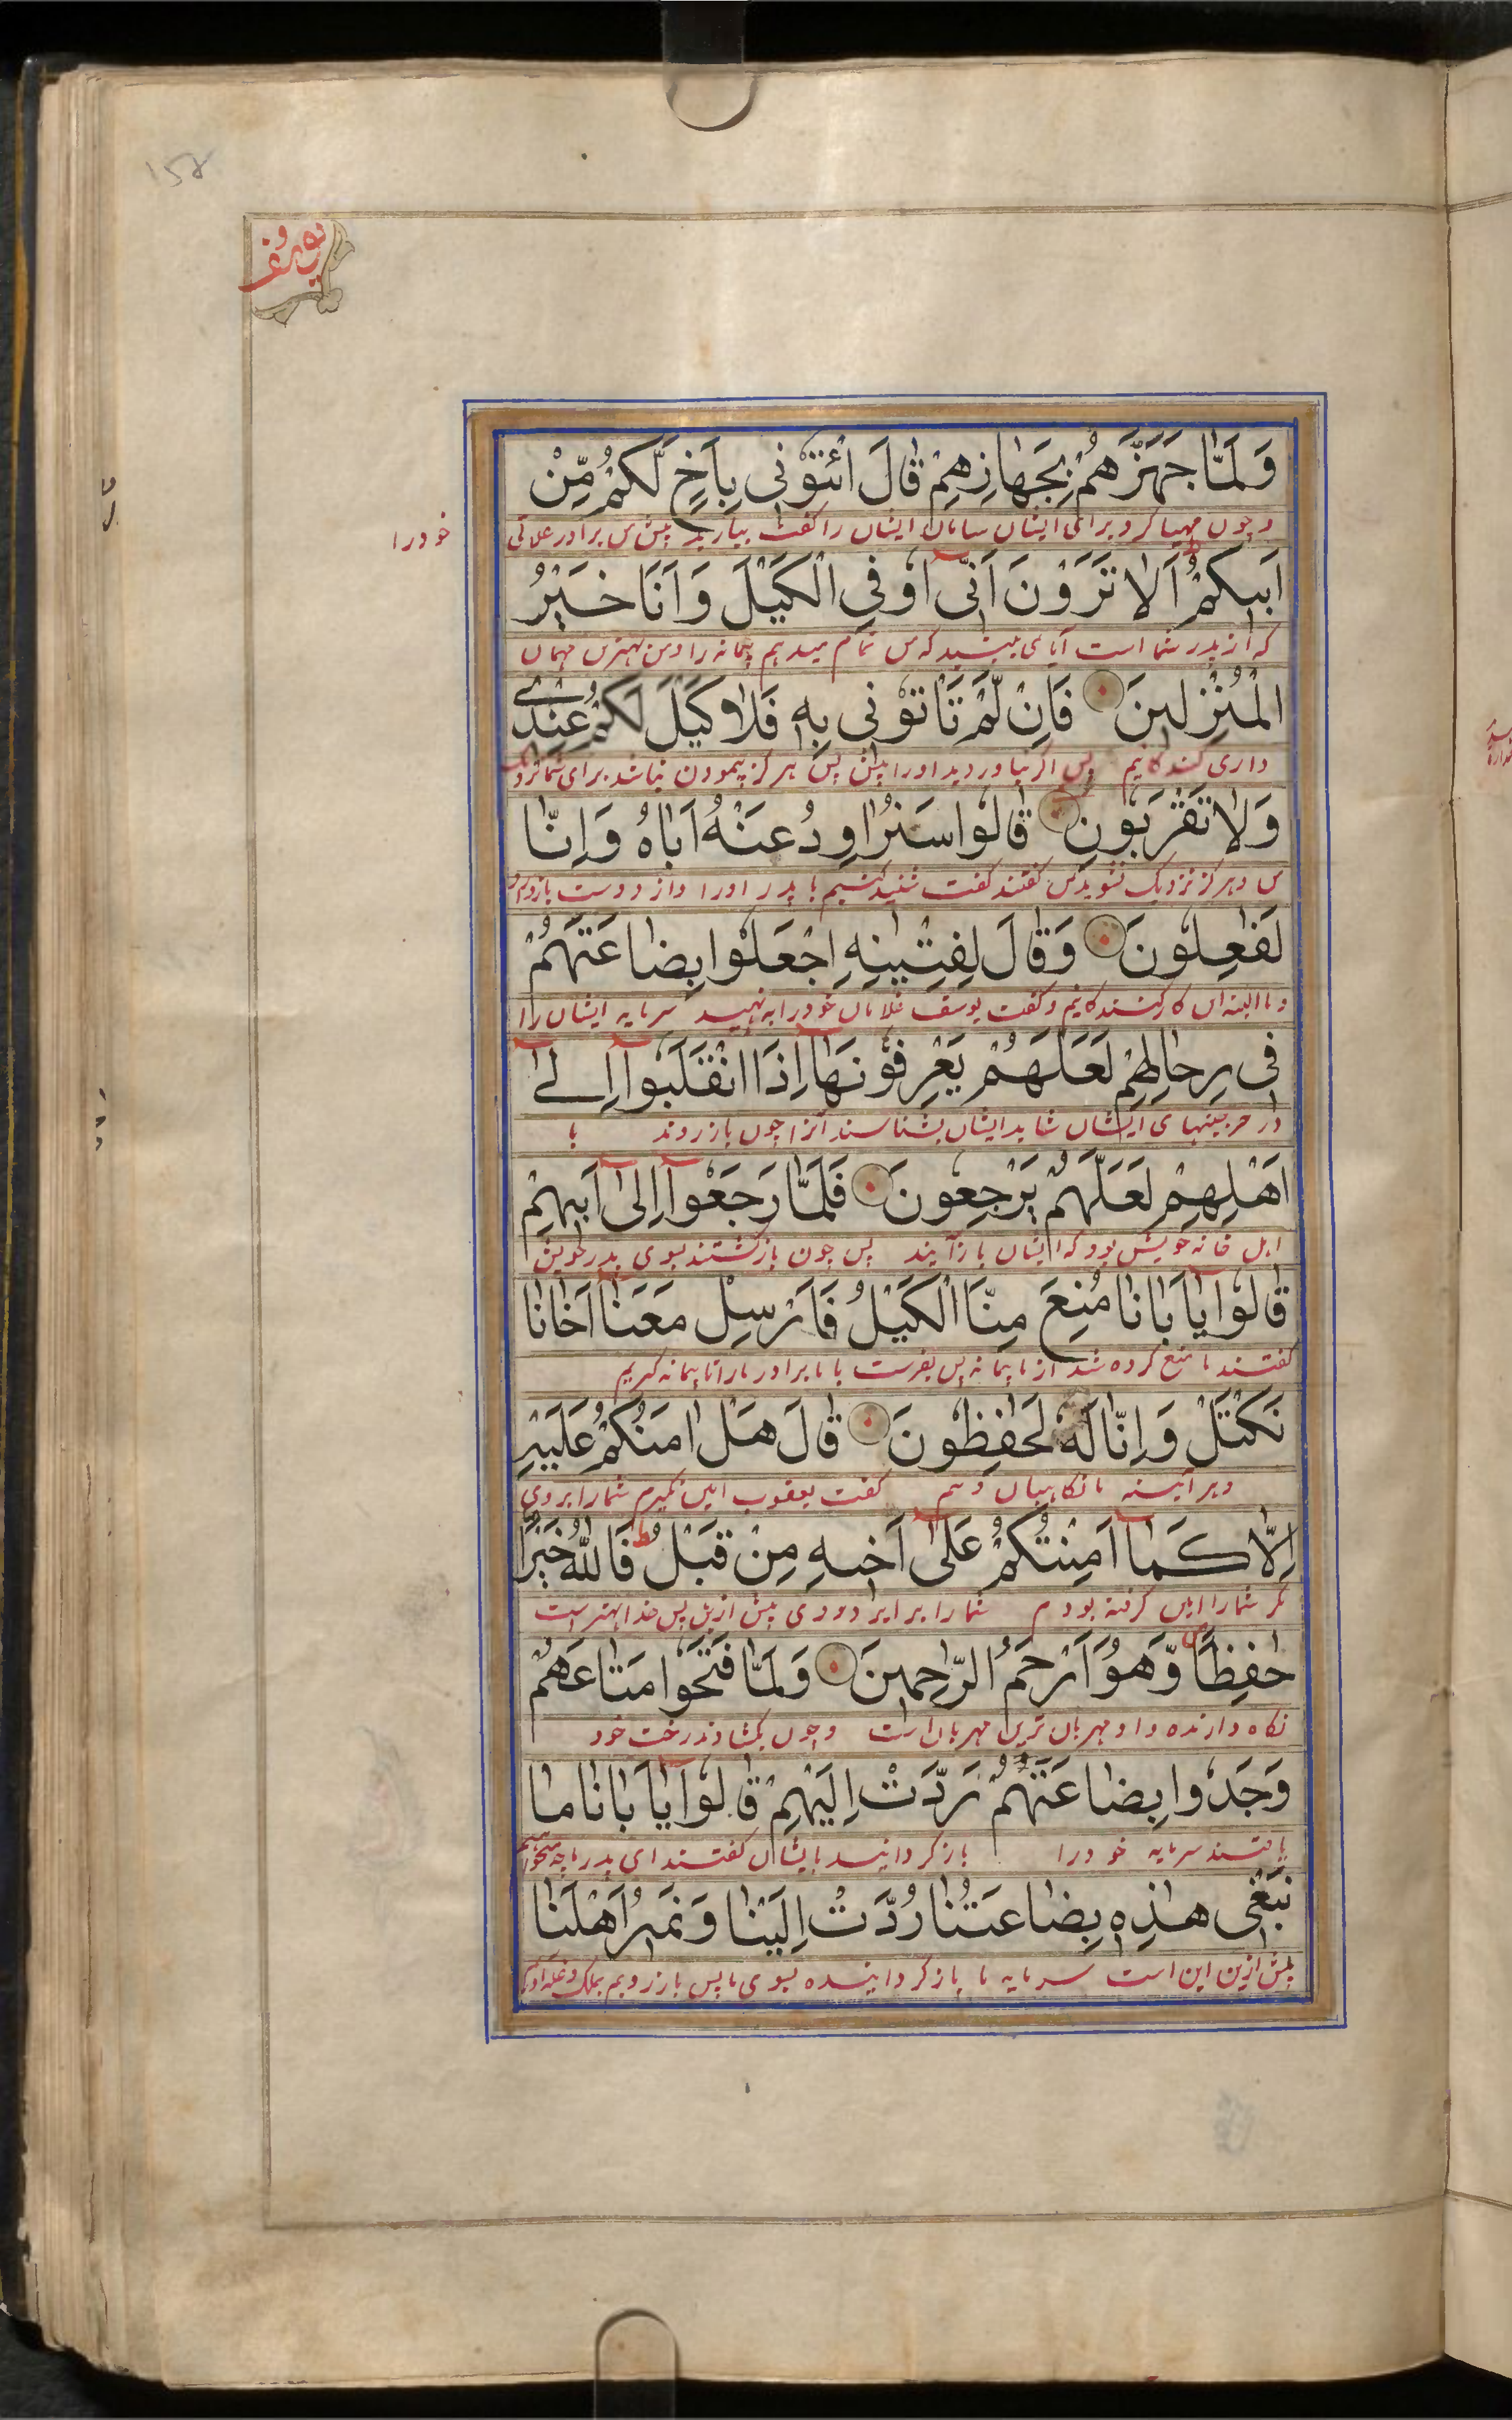 158
یوسف
وَلَمّٰا جَهَّزَهُمْ بِجَهٰازِهِمْ قٰالَ ائْتُوْنِی بِاَخٍ لَّكُمْ مِّنْ
و چون مهیا کرد برای ایشان سامان ایشان را گفت بیارید پیش من برادر علاتی
خود را
اَبِیكُمْ اَلٰا تَرَوْنَ اَنِّی اُوفِی الْكَیْلَ وَاَنَا خَیْرُ
که از پدر شما است آیا می بینید که من تمام میدهم پیمانه را ومن بهترین مهمان
الْمُنْزِلِینَ فَاِنْ لَّمْ تَاْتُوْنِی بِهِ فَلٰا كَیْلَ لَكُمْ عِنْدِے
داری کنندگانیم پس اگر نیاوردید اورا پیش پس هرگز پیمودن نباشد برای شما نزدیک
وَلٰا تَقْرَبُوْنِ قٰالُوْا سَنُرٰاوِدُ عَنْهُ اَبٰاهُ وَاِنّٰا
من و هرگز نزدیک نشوید من گفتند گفت با پدر اورا واز دوست
لَفٰعِلُوْنَ وَقٰالَ لِفِتْیٰنِهِ اجْعَلُوْا بِضٰاعَتَهُمْ
و ما البته این کار کنندگانیم وگفت یوسف غلامان خود را بنهید سرمایه ایشان را
فِی رِحٰالِهِمْ لَعَلَّهُمْ یَعْرِفُوْنَهٰا اِذَا انْقَلَبُوْا اِلٰے
در خرجینهای ایشان شاید ایشان بشناسند آنرا چون باز روند با
اَهْلِهِمْ لَعَلَّهُمْ یَرْجِعُوْنَ فَلَمّٰا رَجَعُوْا اِلٰی اَبِیهِمْ
اهل خانه خویش بود که ایشان باز آیند پس چون بازگشتند بسوی پدر خویش
قٰالُوْا یٰا اَبٰانٰا مُنِعَ مِنَّا الْكَیْلُ فَاَرْسِلْ مَعَنٰا اَخٰانٰا
گفتند منع کرده شد از ما پیمانه پس بفرست با ما برادر مارا تا پیمانه گیریم
نَكْتَلْ وَاِنّٰا لَهُ لَحٰفِظُوْنَ قٰالَ هَلْ اٰمَنُكُمْ عَلَیْهِ
وهر آیینه ما نگاهبان گفت یعقوب امین نگیرم شمارا بروی
اِلّٰا كَمٰا اَمِنْتُكُمْ عَلٰی اَخِیهِ مِنْ قَبْلُ فَاللّٰهُ خَیْرٌ
مگر شمارا امین گرفته بودم شمارا بر برادر وی پیش ازین پس خدا بهتر است
حٰفِظًا وَّهُوَ اَرْحَمُ الرّٰحِمِینَ وَلَمّٰا فَتَحُوْا مَتٰاعَهُمْ
نگاه دارنده و او مهربان ترین مهربان است وچون بگشادند رخت خود
وَجَدُوا بِضٰاعَتَهُمْ رُدَّتْ اِلَیْهِمْ قٰالُوْا یٰا اَبٰانٰا مٰا
یافتند سرمایه خود را باز گردانیده بایشان گفتند ای پدر ما چه میخواهیم
نَبْغِی هٰذِهِ بِضٰاعَتُنٰا رُدَّتْ اِلَیْنٰا وَنَمِیرُ اَهْلَنٰا
بیش ازین این است سرمایه ما باز گردانیده بسوی ما پس باز رویم بملک وغله